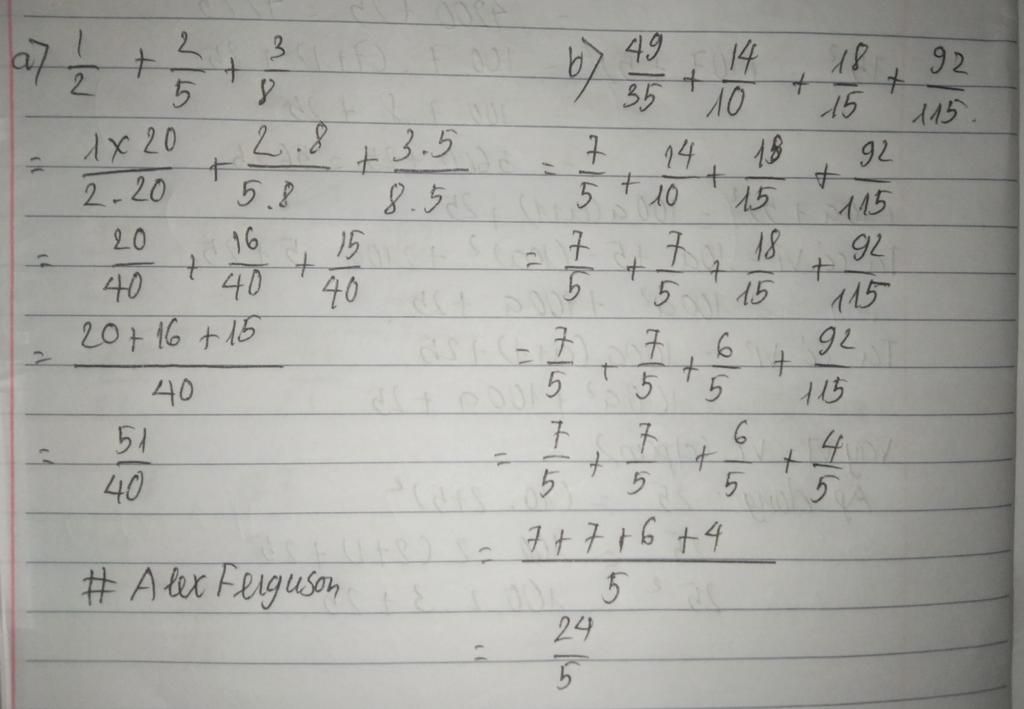 a) 1/2 + 2/5 + 3/8
= 1×20/2.20 + 2.8/5.8 + 3.5/8.5
= 20/40 + 16/40 + 15/40
= 20+16+15/40
= 51/40
# Alex Ferguson
b) 49/35 + 14/10 + 18/15 + 92/115.
= 7/5 + 14/10 + 18/15 + 92/115
= 7/5 + 7/5 + 18/15 + 92/115
= 7/5 + 7/5 + 6/5 + 92/115
= 7/5 + 7/5 + 6/5 + 4/5
= 7+7+6+4/5
= 24/5